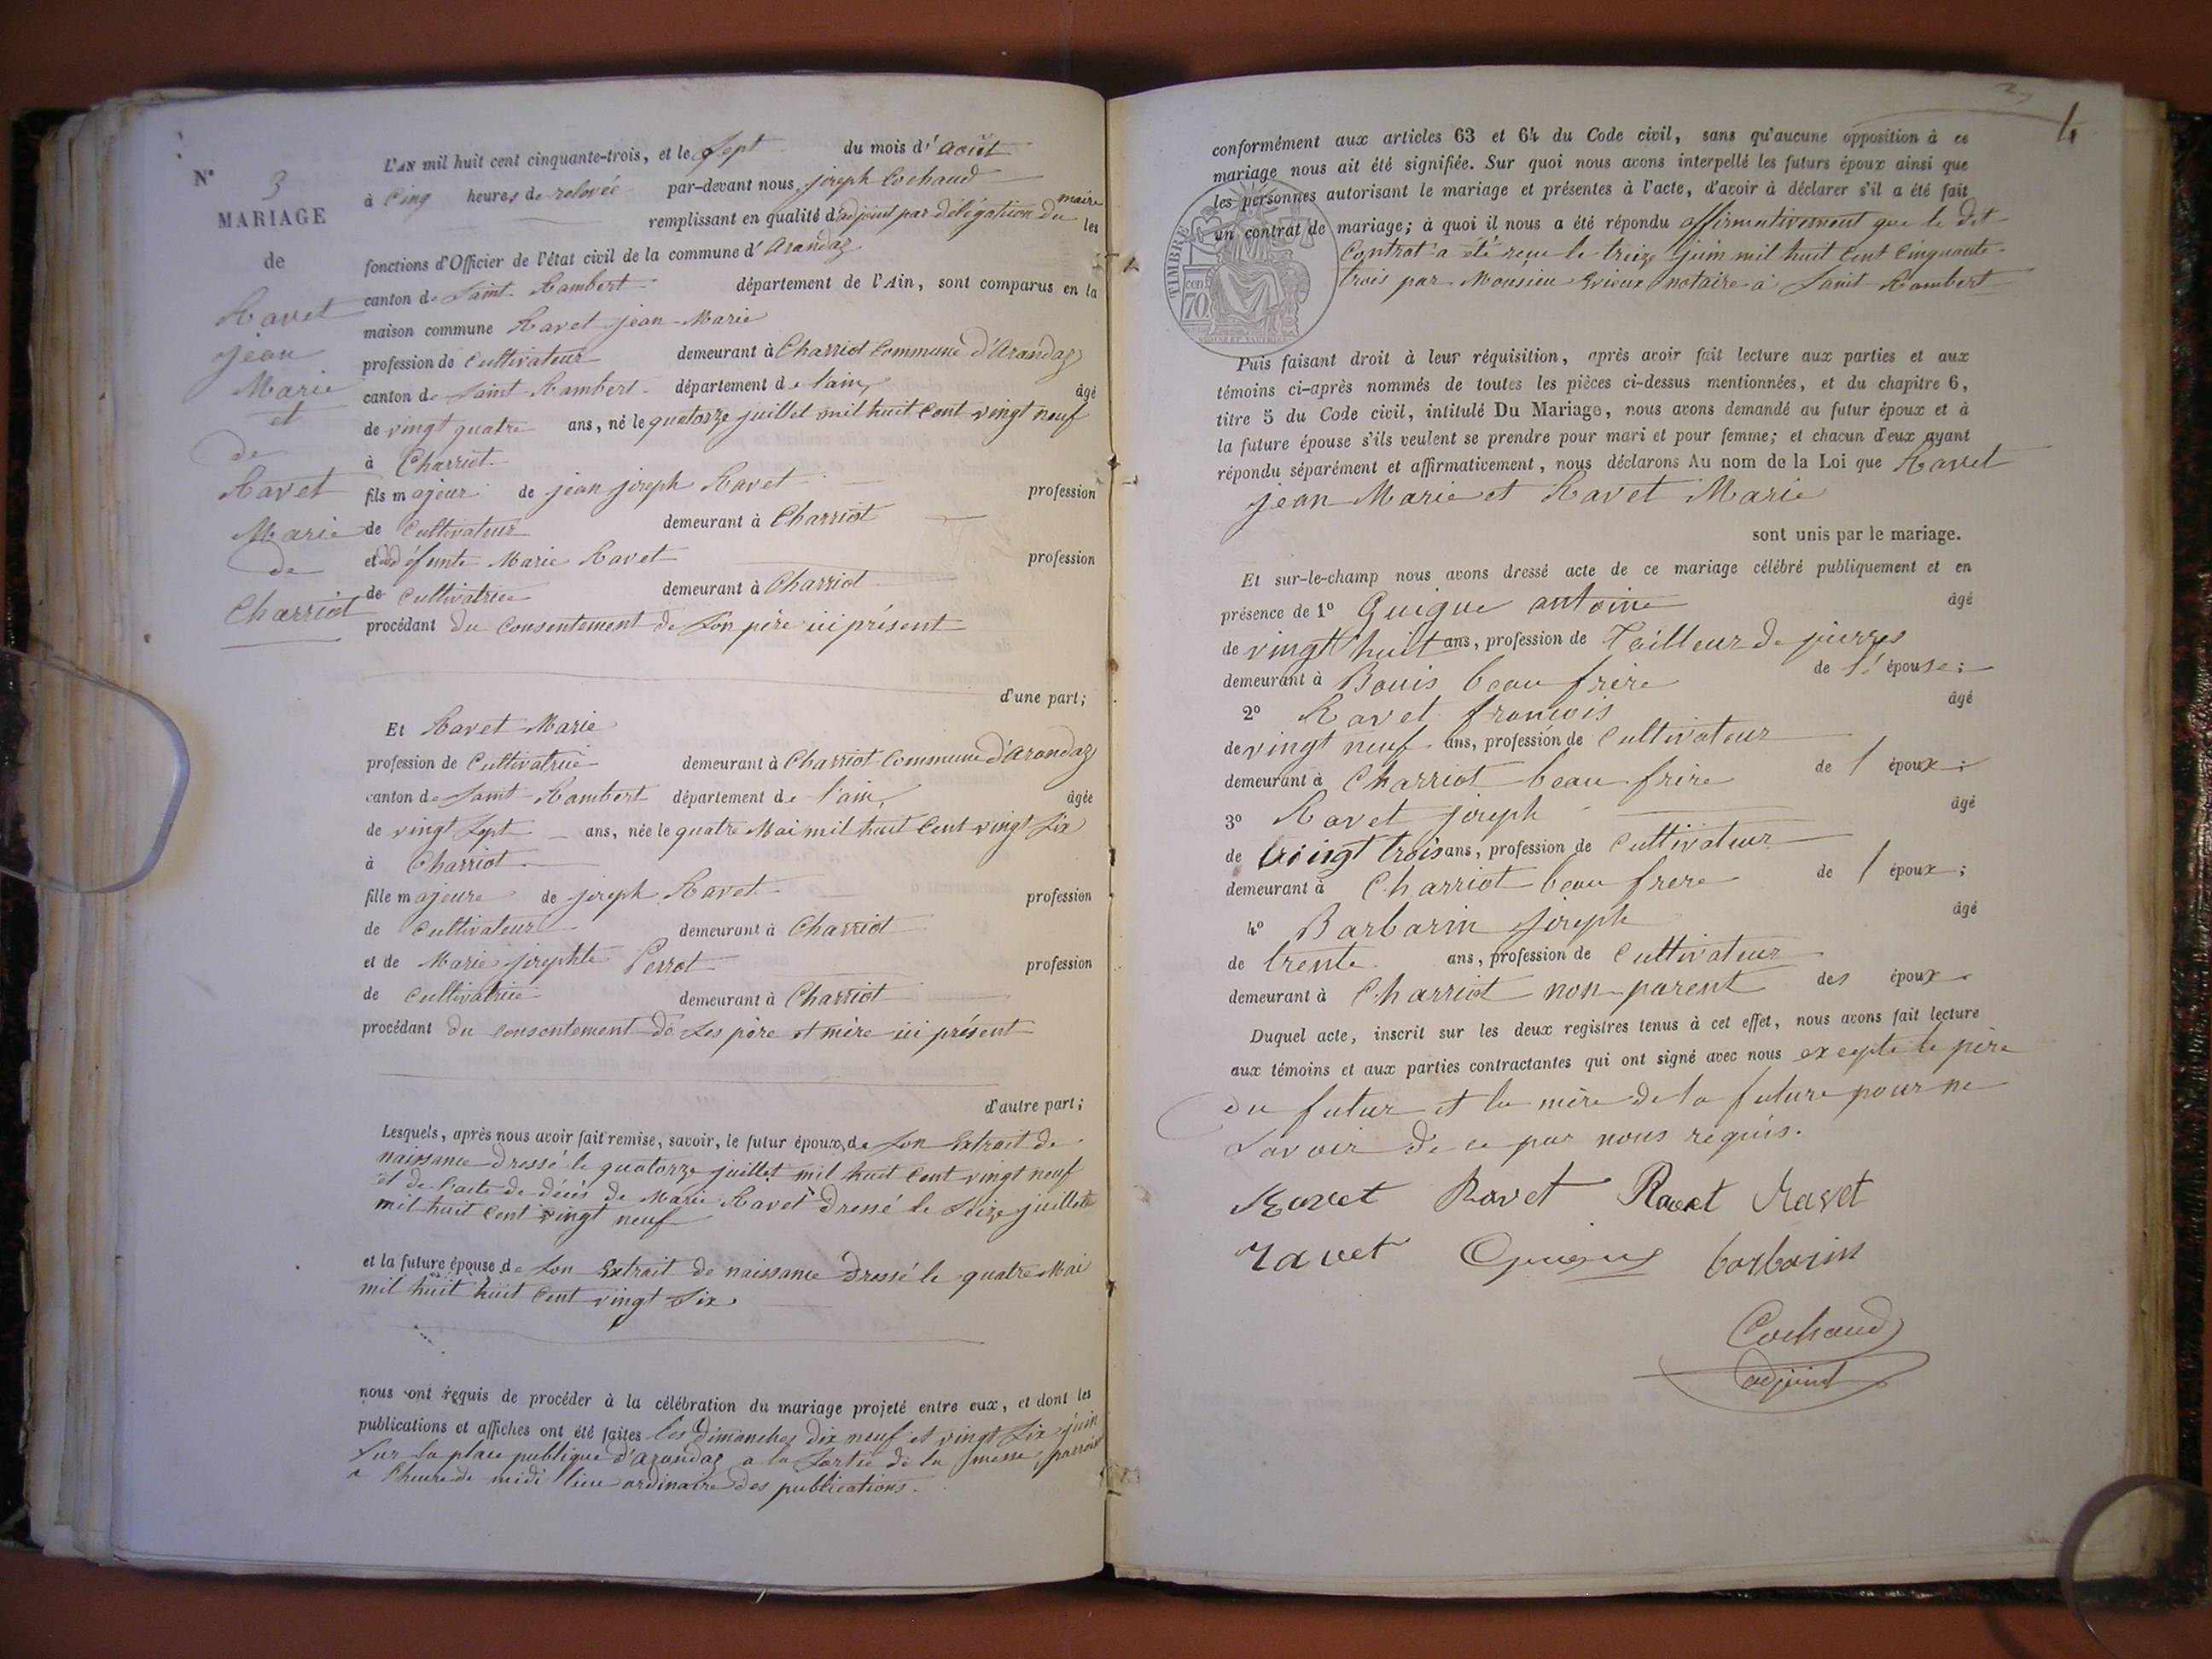 N° 3
MARIAGE
de
Ravet
jean
Marie
et
de
Ravet
Marie
de
Charriot
L'AN mil huit cent cinquante-trois, et le sept du mois d'août
à cinq heures de relevée par-devant nous joseph Cochaud
remplissant en qualité d'adjoint par délégation du maire les
fonctions d'Officier de l'état civil de la commune d'Arandaz
canton de Saint Rambert département de l'Ain, sont comparus en la
maison commune Ravet jean Marie
profession de Cultivateur demeurant à Charriot Commune d'Arandaz
canton de Saint Rambert département de l'ain, âgé
de vingt quatre ans, né le quatorze juillet mil huit cent vingt neuf
à Charriot
fils majeur de jean joseph Ravet profession
de Cultivateur demeurant à Charriot
et de défunte Marie Ravet profession
de Cultivatrice demeurant à Charriot
procédant du Consentement de son père ici présent
d'une part;
Et Ravet Marie
profession de Cultivatrice demeurant à Charriot Commune d'Arandaz
canton de Saint Rambert département de l'ain, âgée
de vingt sept ans, née le quatre Mai mil huit cent vingt six
à Charriot
fille majeure de joseph Ravet profession
de Cultivateur demeurant à Charriot
et de Marie josephte Perrot profession
de Cultivatrice demeurant à Charriot
procédant du consentement de ses père et mère ici présent
d'autre part;
Lesquels, après nous avoir fait remise, savoir, le futur époux, de son Extrait de
naissance dressé le quatorze juillet mil huit cent vingt neuf
et de l'acte de décès de Marie Ravet dressé le seize juillet
mil huit cent vingt neuf
et la future épouse de son Extrait de naissance dressé le quatre Mai
mil huit huit cent vingt six
nous ont requis de procéder à la célébration du mariage projeté entre eux, et dont les
publications et affiches ont été faites les Dimanches dix neuf et vingt six juin
sur la place publique d'Arandaz a la sortie de la messe
a l'heure de midi lieu ordinaire des publications.
4
conformément aux articles 63 et 64 du Code civil, sans qu'aucune opposition à ce
mariage nous ait été signifiée. Sur quoi nous avons interpellé les futurs époux ainsi que
les personnes autorisant le mariage et présentes à l'acte, d'avoir à déclarer s'il a été fait
un contrat de mariage; à quoi il nous a été répondu affirmativement que le dit
Contrat a été reçu le treize juin mil huit cent cinquante
trois par Monsieur notaire à Saint Rambert
TIMBRE
cen
70
Puis faisant droit à leur réquisition, après avoir fait lecture aux parties et aux
témoins ci-après nommés de toutes les pièces ci-dessus mentionnées, et du chapitre 6,
titre 5 du Code civil, intitulé Du Mariage, nous avons demandé au futur époux et à
la future épouse s'ils veulent se prendre pour mari et pour femme; et chacun d'eux ayant
répondu séparément et affirmativement, nous déclarons Au nom de la Loi que Ravet
jean Marie et Ravet Marie
sont unis par le mariage.
Et sur-le-champ nous avons dressé acte de ce mariage célébré publiquement et en
présence de 1° Guigue antoine âgé
de vingt huit ans, profession de Tailleur de pierres
demeurant à Bouis beau frère de l'épouse;
2° Ravet francois âgé
de vingt neuf ans, profession de Cultivateur
demeurant à Charriot beau frère de l époux;
3° Ravet joseph âgé
de vingt trois ans, profession de Cultivateur
demeurant à Charriot beau frere de l époux;
4° Barbarin joseph âgé
de trente ans, profession de Cultivateur
demeurant à Charriot non parent des époux
Duquel acte, inscrit sur les deux registres tenus à cet effet, nous avons fait lecture
aux témoins et aux parties contractantes qui ont signé avec nous excepté le père
du futur et la mère de la future pour ne
savoir de ce par nous requis.
Ravet Ravet Ravet Ravet
ravet Guigue barbarin
Cochaud
adjoint